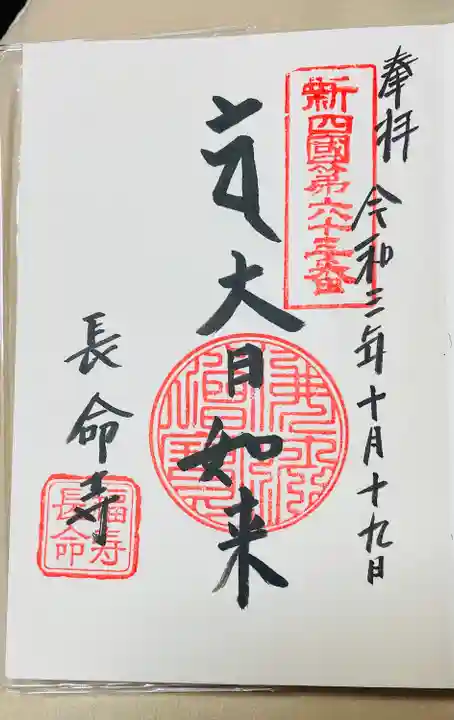 奉拝 令和三年十月十九日
新四國第六十三番
大日如来
長命寺
福寿
長命